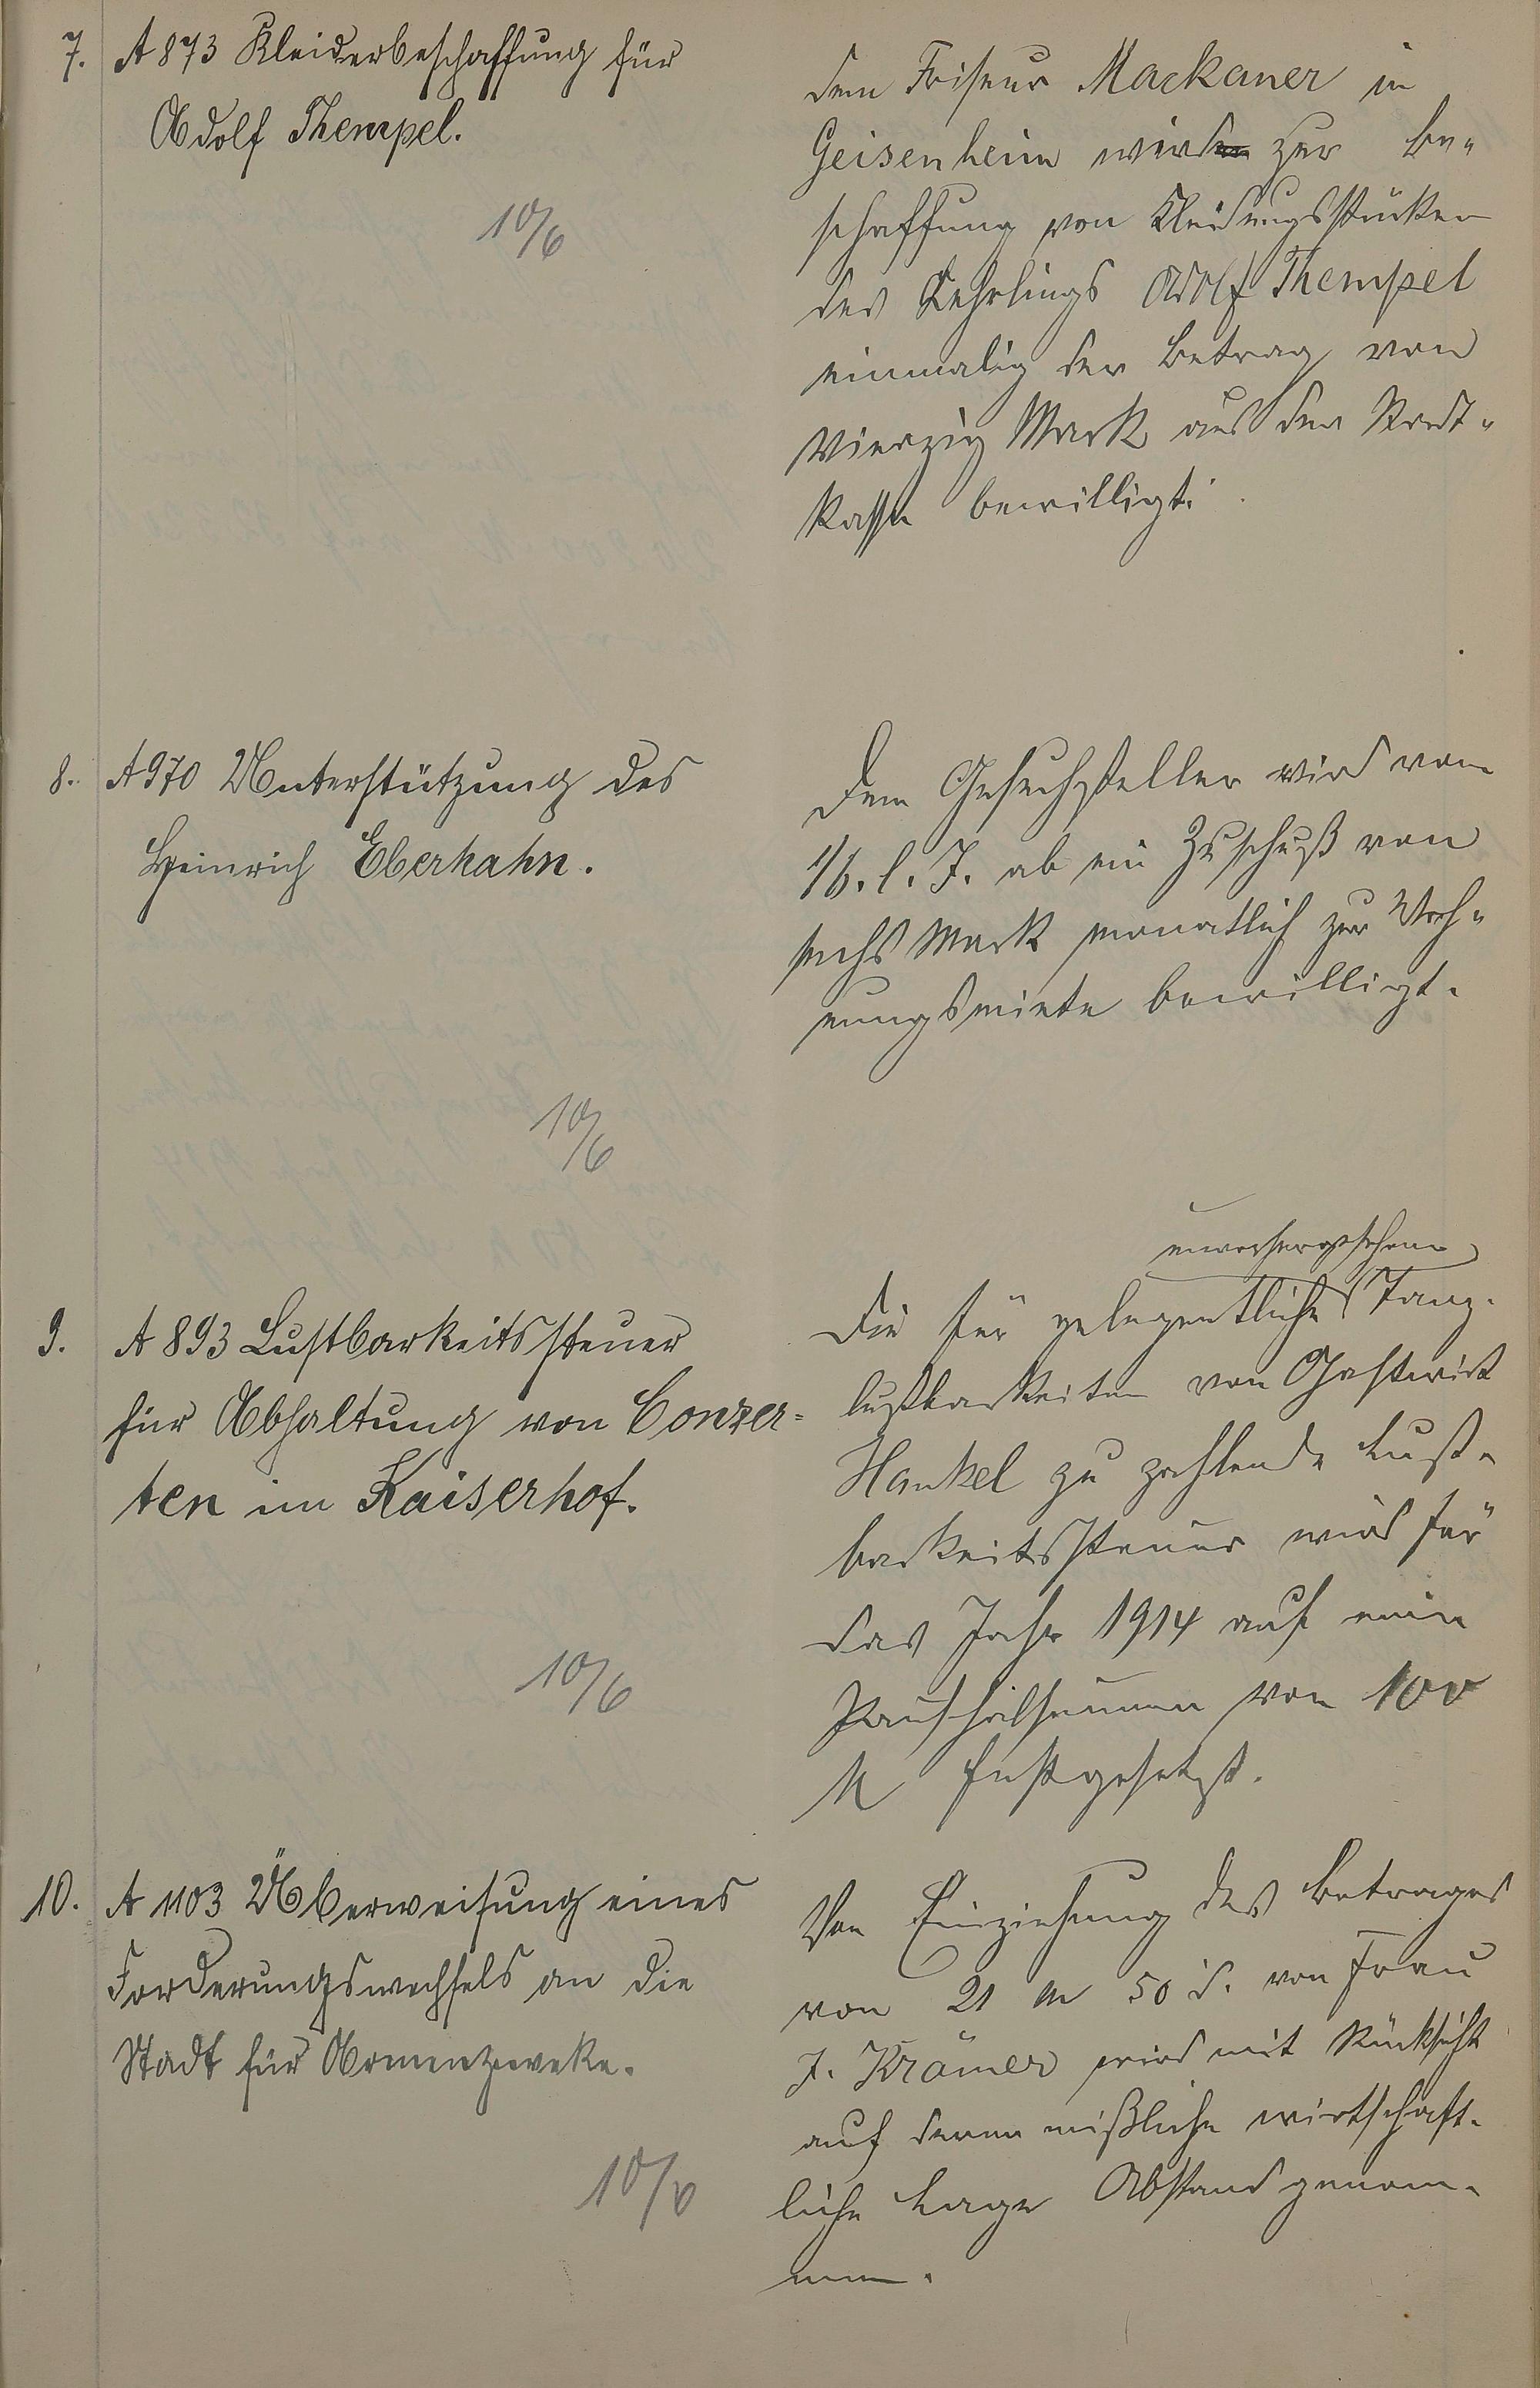 7. A 873 Kleiderbeschaffung für
Adolf Thempel.
10/6
dem Friseur Mackaner in
Geisenheim wird zur Be-
schaffung von Kleidungsstücken
des Lehrlings Adolf Thempel
einmalig der Betrag von
Vierzig Mark aus der Stadt-
kasse bewilligt.
8. A 970 Unterstützung des
Heinrich Eberhahn.
10/6
Dem Gesuchsteller wird vom
1/6. l. J. ab ein Zuschuß von
sechs Mark monatlich zur Woh-
nungsmiete bewilligt.
9. A 893 Lustbarkeitssteuer
für Abhaltung von Conzer-
ten im Kaiserhof.
10/6
unvorhergesehene
Die für gelegentliche Tanz-
lustbarkeiten von Gastwirt
Hankel zu zahlende Lust-
barkeitssteuer wird für
das Jahr 1914 auf eine
Pauschalsumme von 100
M festgesetzt.
10. A 1103 Überweisung eines
Forderungswechsels an die
Stadt für Armenzwecke.
10/6
Von Einziehung des Betrages
von 21 M 50 d. von Frau
J. Krämer wird mit Rücksicht
auf deren mißliche wirtschaft-
liche Lage Abstand genom-
men.